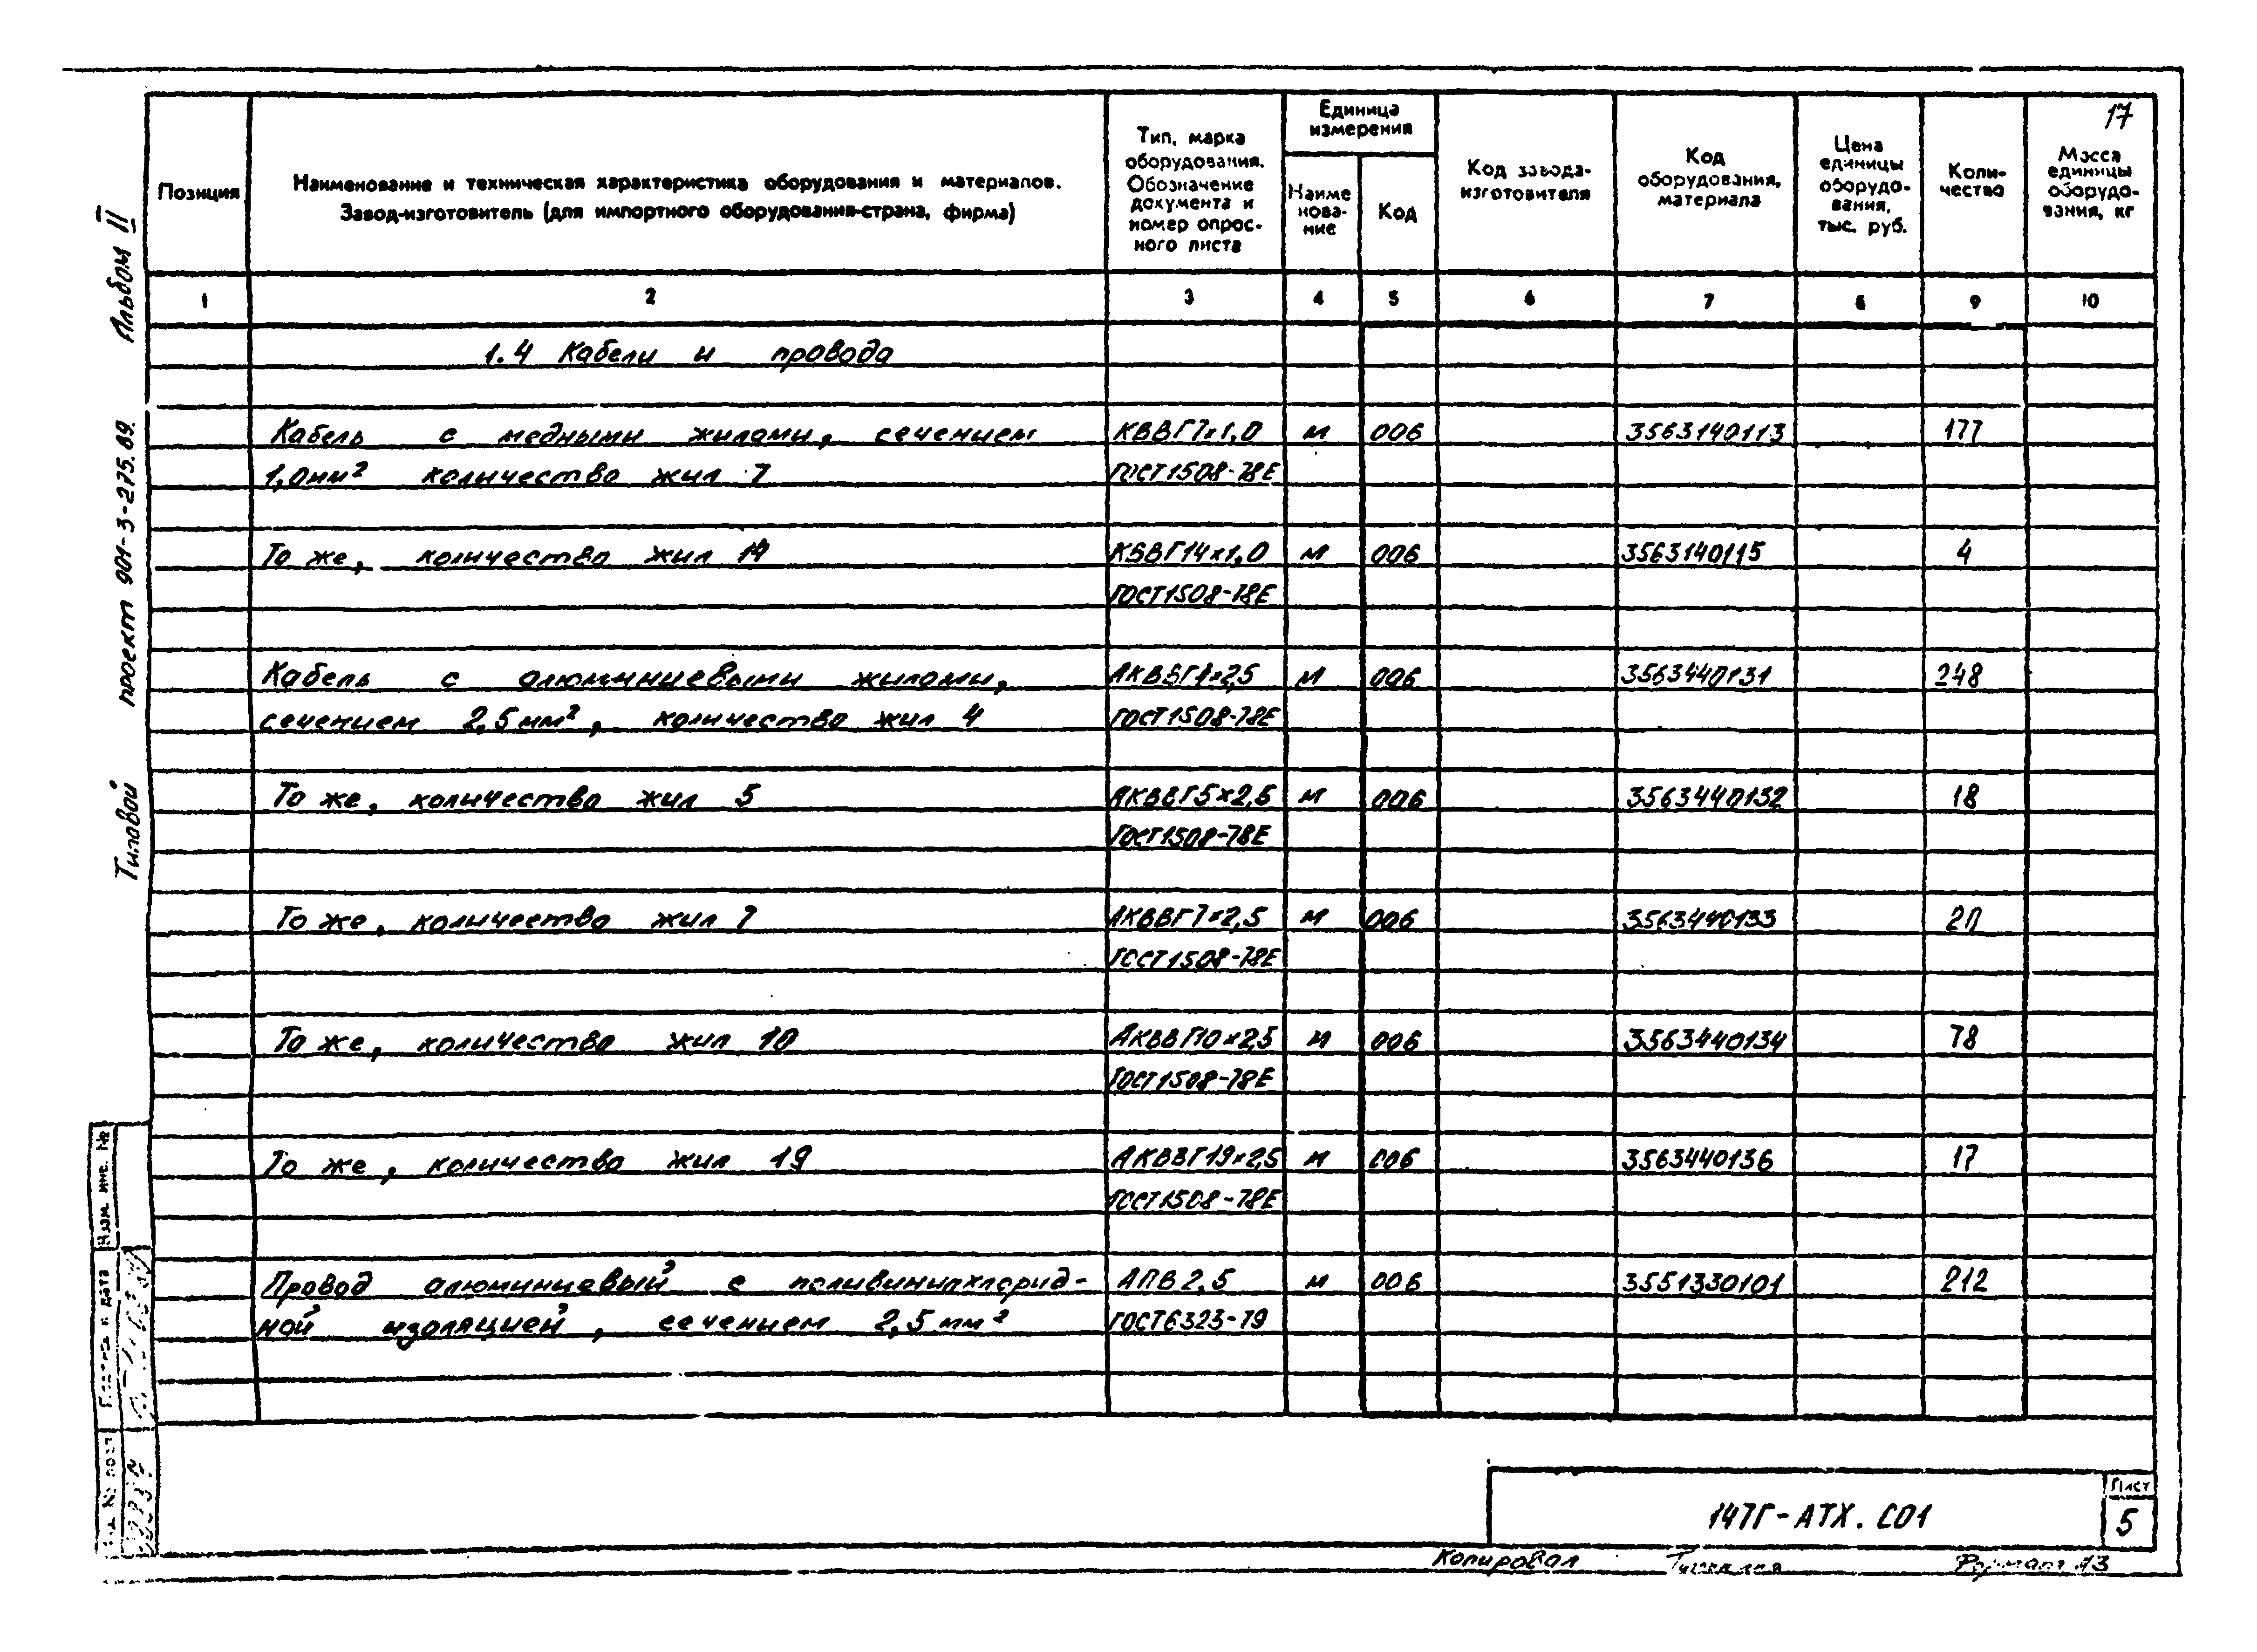 17
Позиция
Наименование и техническая характеристика оборудования и материалов.
Завод-изготовитель (для импортного оборудования-страна, фирма)
Тип, марка
оборудования.
Обозначение
документа и
номер опрос-
ного листа
Единица
измерения
Наиме
нова-
ние
Код
Код завода-
изготовителя
Код
оборудования,
материала
Цена
единицы
оборудо-
вания,
тыс. руб.
Коли-
чество
Масса
единицы
оборудо-
вания, кг
1 2 3 4 5 6 7 8 9 10
1.4 Кабели и провода
Кабель с медными жилами, сечением КВВГ7х1,0 м 006 3563140113 177
1,0мм² количество жил 7 ГОСТ1508-78Е
То же, количество жил 14 КВВГ14х1,0 м 006 3563140115 4
ГОСТ1508-78Е
Кабель с алюминиевыми жилами, АКВВГ4х2,5 м 006 3563440131 248
сечением 2,5мм², количество жил 4 ГОСТ1508-78Е
То же, количество жил 5 АКВВГ5х2,5 м 006 3563440132 18
ГОСТ1508-78Е
То же, количество жил 7 АКВВГ7х2,5 м 006 3563440133 20
ГОСТ1508-78Е
То же, количество жил 10 АКВВГ10х2,5 м 006 3563440134 78
ГОСТ1508-78Е
То же, количество жил 19 АКВВГ19х2,5 м 006 3563440136 17
ГОСТ1508-78Е
Провод алюминиевый с поливинилхлорид- АПВ 2,5 м 006 3551330101 212
ной изоляцией, сечением 2,5мм² ГОСТ6323-79
Типовой проект 901-3-275.89. Альбом II
Взам. инв. №
и дата
147Г-АТХ.С01
Лист
5
Копировал
Формат А3